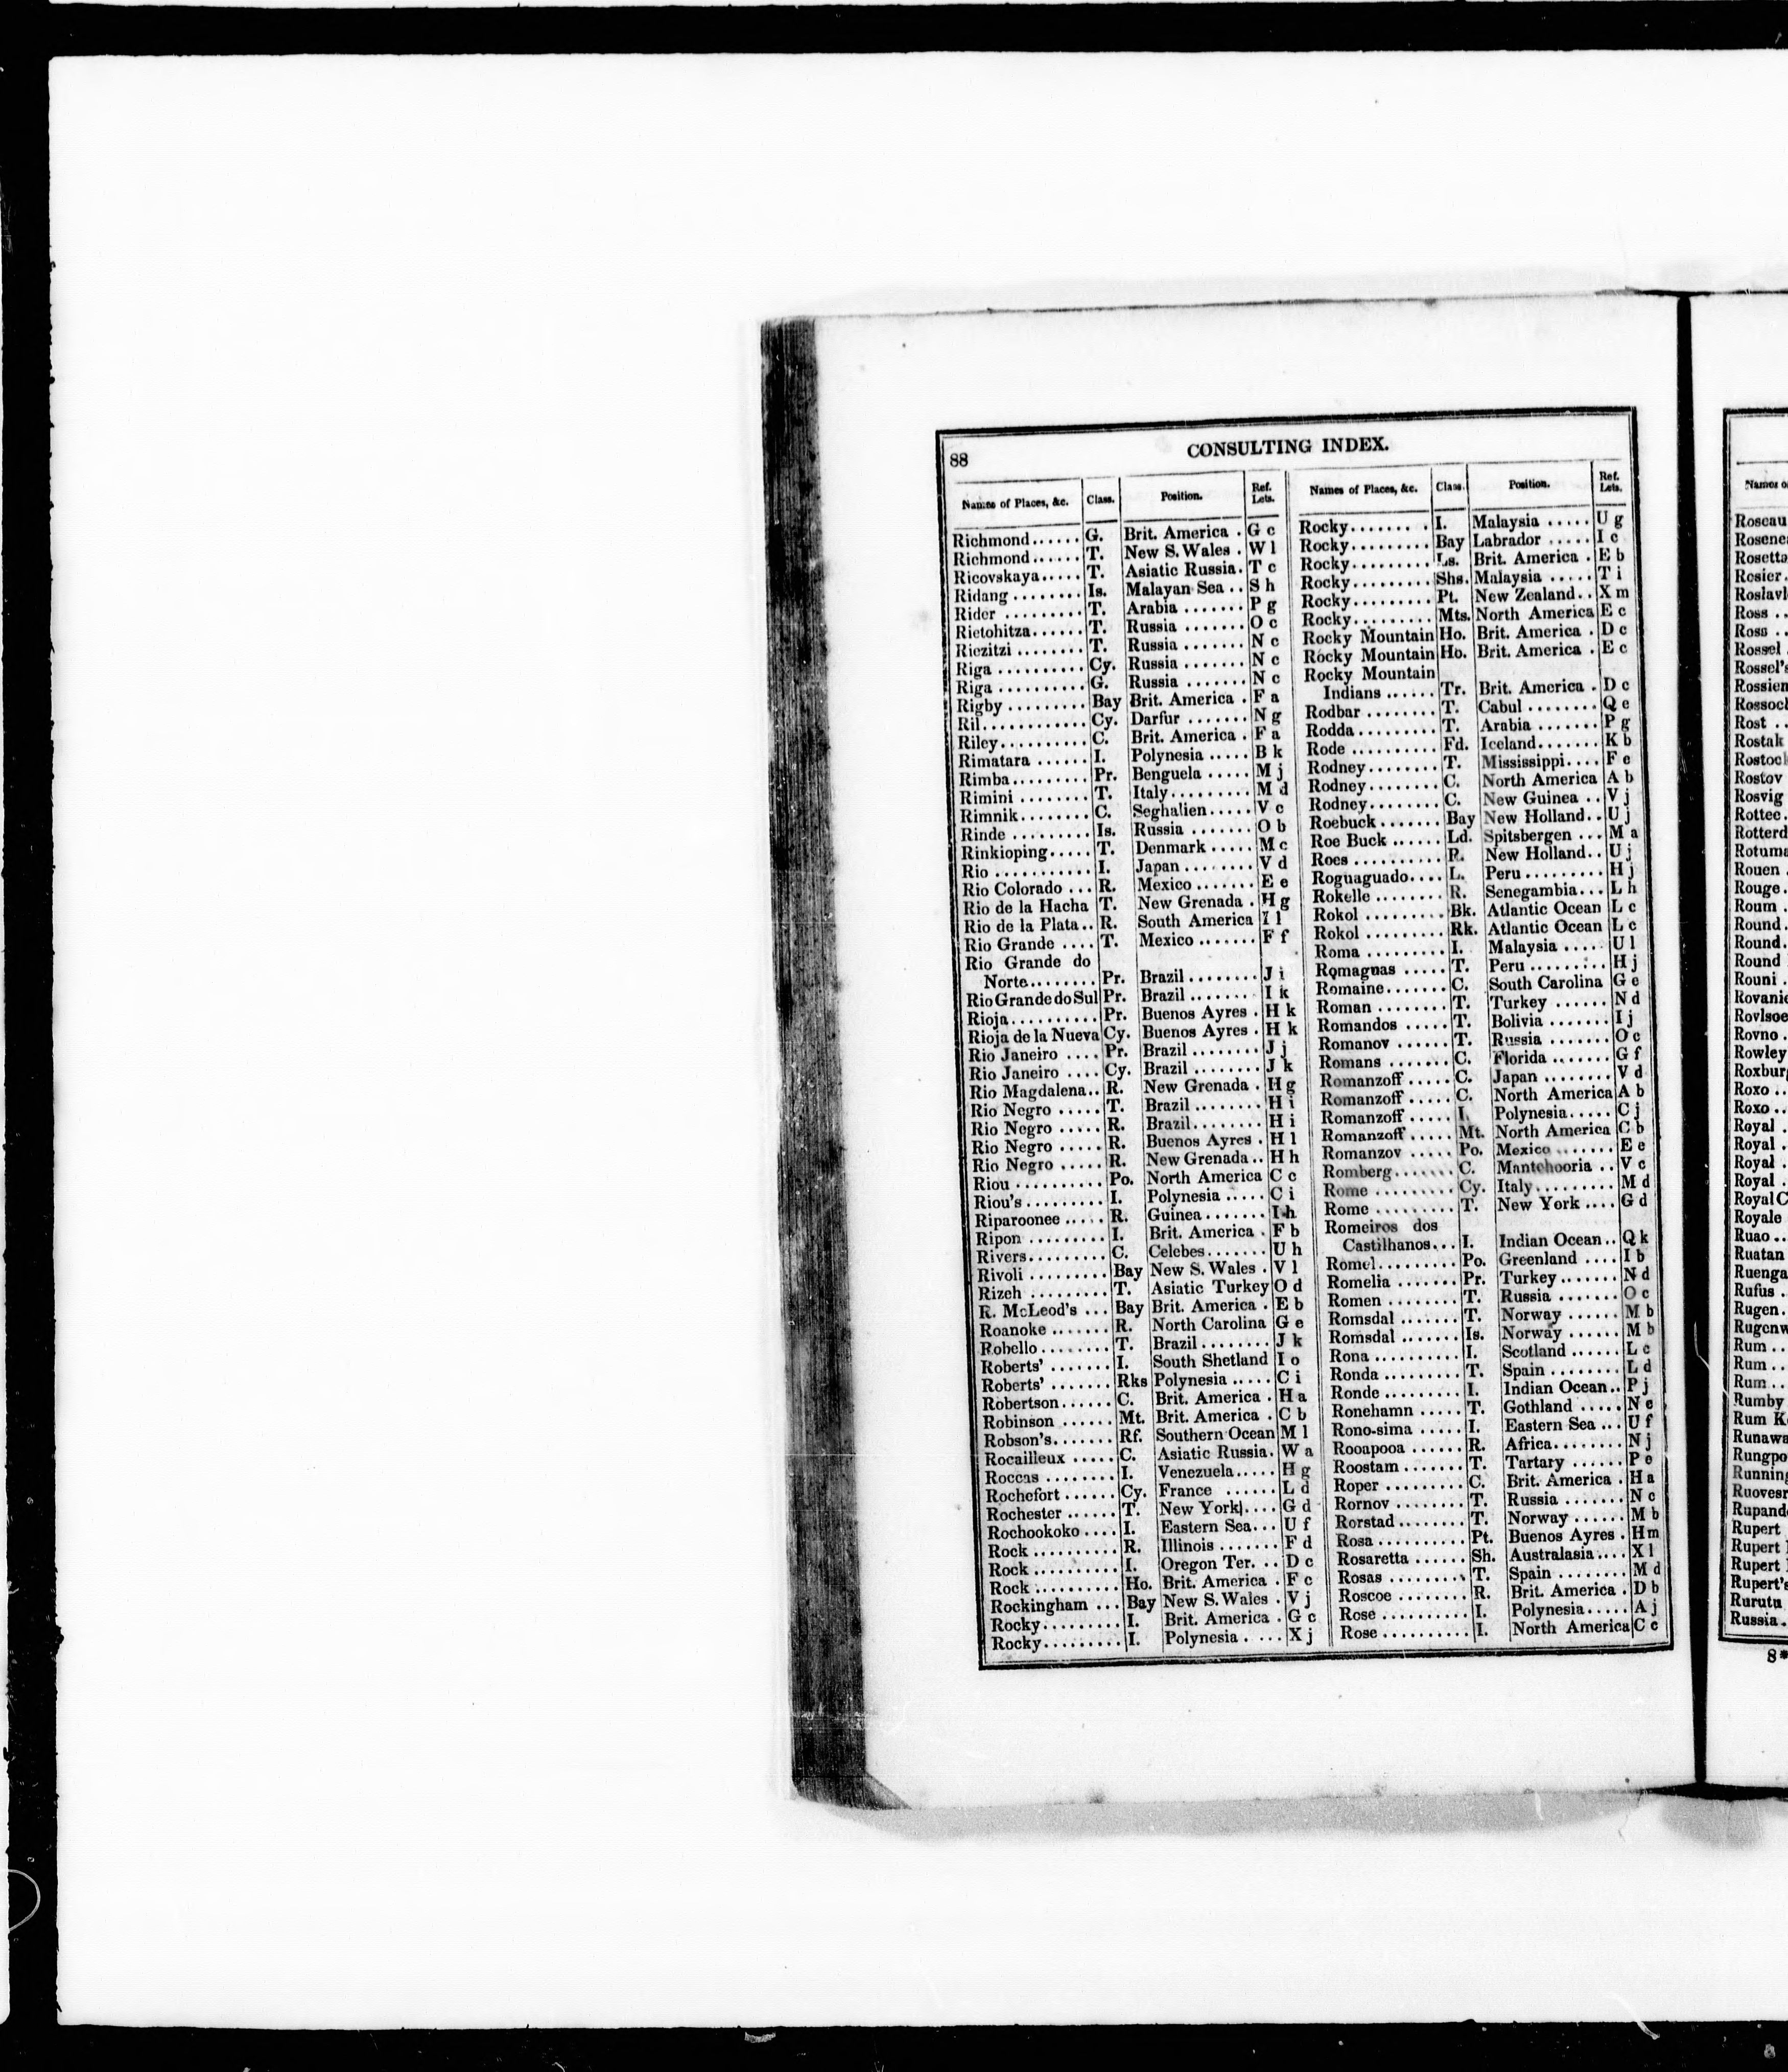 88
CONSULTING INDEX.
Names of Places, &c. Class. Position. Ref. Lets.
Richmond...... G. Brit. America . G c
Richmond...... T. New S. Wales . W l
Ricovskaya..... T. Asiatic Russia. T c
Ridang ........ Is. Malayan Sea .. S h
Rider ......... T. Arabia ....... P g
Rietohitza...... T. Russia ....... O c
Riezitzi ........ T. Russia ....... N c
Riga .......... Cy. Russia ....... N c
Riga .......... G. Russia ....... N c
Rigby ......... Bay Brit. America . F a
Ril............ Cy. Darfur ....... N g
Riley.......... C. Brit. America . F a
Rimatara ...... I. Polynesia ..... B k
Rimba......... Pr. Benguela ..... M j
Rimini ........ T. Italy......... M d
Rimnik........ C. Seghalien..... V c
Rinde ......... Is. Russia ....... O b
Rinkioping..... T. Denmark ..... M c
Rio ........... I. Japan ........ V d
Rio Colorado ... R. Mexico ....... E e
Rio de la Hacha T. New Grenada . H g
Rio de la Plata.. R. South America I l
Rio Grande .... T. Mexico ....... F f
Rio Grande do
Norte........ Pr. Brazil ........ J i
Rio Grande do Sul Pr. Brazil ....... I k
Rioja.......... Pr. Buenos Ayres . H k
Rioja de la Nueva Cy. Buenos Ayres . H k
Rio Janeiro .... Pr. Brazil ........ J j
Rio Janeiro .... Cy. Brazil ........ J k
Rio Magdalena.. R. New Grenada . H g
Rio Negro ..... T. Brazil ........ H i
Rio Negro ..... R. Brazil........ H i
Rio Negro ..... R. Buenos Ayres . H l
Rio Negro ..... R. New Grenada.. H h
Riou .......... Po. North America C c
Riou's ......... I. Polynesia ..... C i
Riparoonee ..... R. Guinea....... I h
Ripon ......... I. Brit. America . F b
Rivers......... C. Celebes....... U h
Rivoli ......... Bay New S. Wales . V l
Rizeh ......... T. Asiatic Turkey O d
R. McLeod's ... Bay Brit. America . E b
Roanoke ....... R. North Carolina G e
Robello........ T. Brazil........ J k
Roberts' ....... I. South Shetland I o
Roberts' ....... Rks Polynesia ..... C i
Robertson...... C. Brit. America . H a
Robinson ...... Mt. Brit. America . C b
Robson's....... Rf. Southern Ocean M l
Rocailleux ..... C. Asiatic Russia. W a
Roccas ........ I. Venezuela..... H g
Rochefort ...... Cy. France ...... L d
Rochester ...... T. New York.... G d
Rochookoko .... I. Eastern Sea... U f
Rock .......... R. Illinois ....... F d
Rock .......... I. Oregon Ter. ... D c
Rock .......... Ho. Brit. America . F c
Rockingham ... Bay New S. Wales . V j
Rocky......... I. Brit. America . G c
Rocky......... I. Polynesia ..... X j
Names of Places, &c. Class. Position. Ref. Lets.
Rocky......... I. Malaysia ..... U g
Rocky......... Bay Labrador ..... I c
Rocky......... Ls. Brit. America . E b
Rocky......... Shs. Malaysia ..... T i
Rocky......... Pt. New Zealand.. X m
Rocky......... Mts. North America E c
Rocky Mountain Ho. Brit. America . D c
Rocky Mountain Ho. Brit. America . E c
Rocky Mountain
Indians ...... Tr. Brit. America . D c
Rodbar ........ T. Cabul ........ Q e
Rodda......... T. Arabia ....... P g
Rode .......... Fd. Iceland....... K b
Rodney........ T. Mississippi.... F e
Rodney........ C. North America A b
Rodney........ C. New Guinea .. V j
Roebuck ....... Bay New Holland.. U j
Roe Buck ...... Ld. Spitsbergen ... M a
Roes .......... R. New Holland.. U j
Roguaguado.... L. Peru ......... H j
Rokelle ........ R. Senegambia... L h
Rokol ......... Bk. Atlantic Ocean L c
Rokol ......... Rk. Atlantic Ocean L c
Roma ......... I. Malaysia ..... U l
Romaguas ..... T. Peru ......... H j
Romaine....... C. South Carolina G e
Roman ........ T. Turkey ...... N d
Romandos ..... T. Bolivia ....... I j
Romanov ...... T. Russia ....... O c
Romans ....... C. Florida ....... G f
Romanzoff ..... C. Japan ........ V d
Romanzoff ..... C. North America A b
Romanzoff ..... I. Polynesia..... C j
Romanzoff ..... Mt. North America C b
Romanzov ..... Po. Mexico ....... E e
Romberg....... C. Mantchooria .. V c
Rome ......... Cy. Italy......... M d
Rome ......... T. New York .... G d
Romeiros dos
Castilhanos... I. Indian Ocean.. Q k
Romel......... Po. Greenland .... I b
Romelia ....... Pr. Turkey....... N d
Romen ........ T. Russia ....... O c
Romsdal ....... T. Norway ...... M b
Romsdal ....... Is. Norway ...... M b
Rona .......... I. Scotland ...... L c
Ronda ......... T. Spain ........ L d
Ronde ......... I. Indian Ocean.. P j
Ronehamn ..... T. Gothland ..... N c
Rono-sima ..... I. Eastern Sea ... U f
Rooapooa ...... R. Africa........ N j
Roostam ....... T. Tartary ...... P e
Roper ......... C. Brit. America . H a
Rornov ........ T. Russia ....... N c
Rorstad........ T. Norway ...... M b
Rosa .......... Pt. Buenos Ayres . H m
Rosaretta ...... Sh. Australasia.... X l
Rosas ......... T. Spain ........ M d
Roscoe ........ R. Brit. America . D b
Rose .......... I. Polynesia..... A j
Rose .......... I. North America C c
Names
Roseau
Rosetta
Rosier.
Ross ..
Ross ..
Rossel
Rossel's
Rost ..
Rostak
Rostov
Rosvig
Rottee.
Rouen .
Rouge.
Roum .
Round.
Round.
Round
Rouni .
Rovno .
Rowley
Roxo ..
Roxo ..
Royal .
Royal .
Royal .
Royal .
Royal C
Royale
Ruao ..
Ruatan
Rufus ..
Rugen.
Rum ..
Rum ..
Rum ..
Rumby
Rum K
Rupert
Rupert
Rupert
Rupert's
Rurutu
Russia.
8*